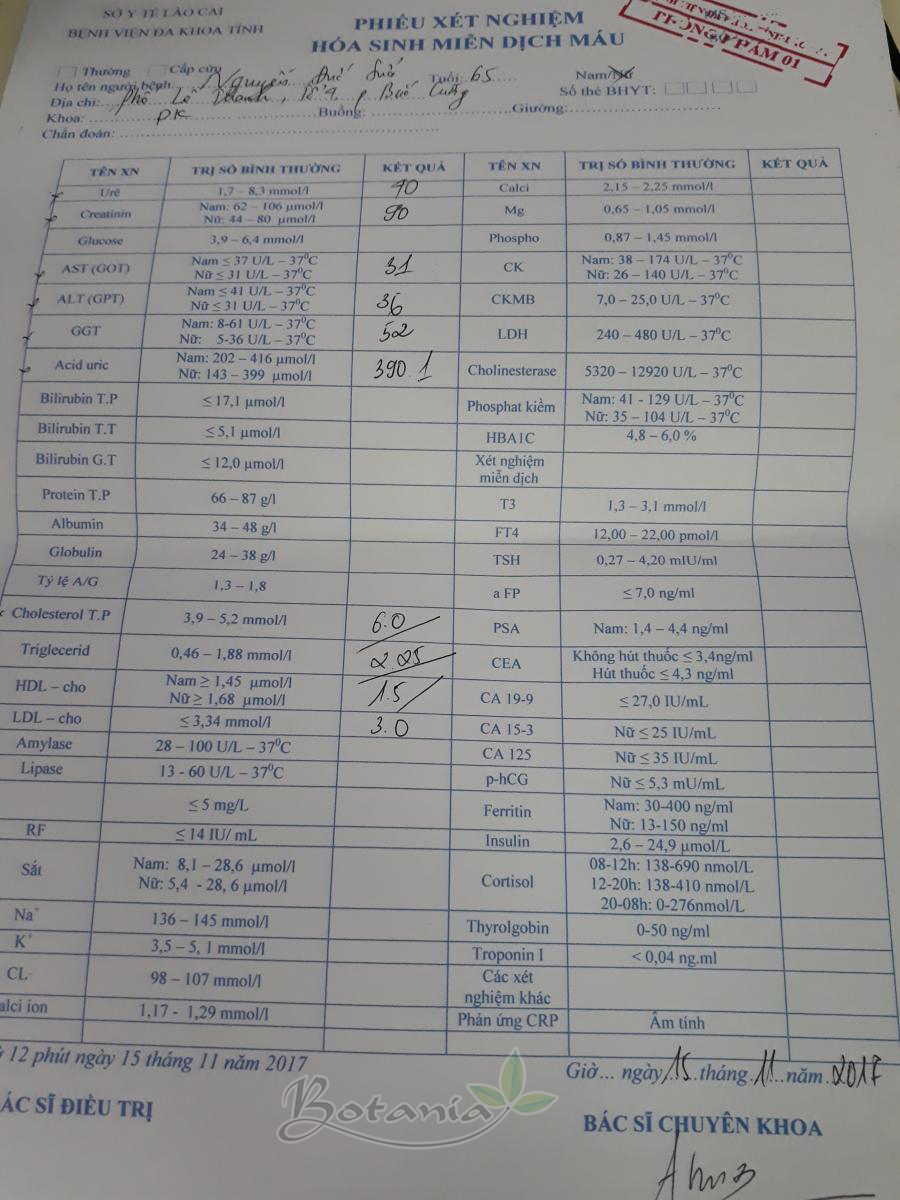 SỞ Y TẾ LÀO CAI
BỆNH VIỆN ĐA KHOA TỈNH
PHIẾU XÉT NGHIỆM
HÓA SINH MIỄN DỊCH MÁU
Thường Cấp cứu
Họ tên người bệnh: Nguyễn Tuổi: 65 Nam/Nữ
Địa chỉ: Phố Lê Thanh, Số thẻ BHYT:
Khoa: PK Buồng: Giường:
Chẩn đoán:
TÊN XN TRỊ SỐ BÌNH THƯỜNG KẾT QUẢ TÊN XN TRỊ SỐ BÌNH THƯỜNG KẾT QUẢ
Urê 1,7 – 8,3 mmol/l Calci 2,15 – 2,25 mmol/l
Creatinin Nam: 62 – 106 µmol/l 90 Mg 0,65 – 1,05 mmol/l
Nữ: 44 – 80 µmol/l
Glucose 3,9 – 6,4 mmol/l Phospho 0,87 – 1,45 mmol/l
AST (GOT) Nam ≤ 37 U/L – 37⁰C 31 CK Nam: 38 – 174 U/L – 37⁰C
Nữ ≤ 31 U/L – 37⁰C Nữ: 26 – 140 U/L – 37⁰C
ALT (GPT) Nam ≤ 41 U/L – 37⁰C 36 CKMB 7,0 – 25,0 U/L – 37⁰C
Nữ ≤ 31 U/L – 37⁰C
GGT Nam: 8-61 U/L – 37⁰C 52 LDH 240 – 480 U/L – 37⁰C
Nữ: 5-36 U/L – 37⁰C
Acid uric Nam: 202 – 416 µmol/l 390.1 Cholinesterase 5320 – 12920 U/L – 37⁰C
Nữ: 143 – 399 µmol/l
Bilirubin T.P ≤ 17,1 µmol/l Phosphat kiềm Nam: 41 - 129 U/L – 37⁰C
Nữ: 35 – 104 U/L – 37⁰C
Bilirubin T.T ≤ 5,1 µmol/l HBA1C 4,8 – 6,0 %
Bilirubin G.T ≤ 12,0 µmol/l Xét nghiệm
miễn dịch
Protein T.P 66 – 87 g/l T3 1,3 – 3,1 mmol/l
Albumin 34 – 48 g/l FT4 12,00 – 22,00 pmol/l
Globulin 24 – 38 g/l TSH 0,27 – 4,20 mIU/ml
Tỷ lệ A/G 1,3 – 1,8 a FP ≤ 7,0 ng/ml
Cholesterol T.P 3,9 – 5,2 mmol/l 6.0 PSA Nam: 1,4 – 4,4 ng/ml
Triglecerid 0,46 – 1,88 mmol/l 2.25 CEA Không hút thuốc ≤ 3,4ng/ml
Hút thuốc ≤ 4,3 ng/ml
HDL – cho Nam ≥ 1,45 µmol/l 1.5 CA 19-9 ≤ 27,0 IU/mL
Nữ ≥ 1,68 µmol/l
LDL – cho ≤ 3,34 mmol/l 3.0 CA 15-3 Nữ ≤ 25 IU/mL
Amylase 28 – 100 U/L – 37⁰C CA 125 Nữ ≤ 35 IU/mL
Lipase 13 - 60 U/L – 37⁰C p-hCG Nữ ≤ 5,3 mU/mL
≤ 5 mg/L Ferritin Nam: 30-400 ng/ml
Nữ: 13-150 ng/ml
RF ≤ 14 IU/ mL Insulin 2,6 – 24,9 µmol/L
Sắt Nam: 8,1 – 28,6 µmol/l Cortisol 08-12h: 138-690 nmol/L
Nữ: 5,4 - 28, 6 µmol/l 12-20h: 138-410 nmol/L
20-08h: 0-276nmol/L
Na⁺ 136 – 145 mmol/l Thyrolgobin 0-50 ng/ml
K⁺ 3,5 – 5, 1 mmol/l Troponin I < 0,04 ng.ml
CL⁻ 98 – 107 mmol/l Các xét
nghiệm khác
alci ion 1,17 - 1,29 mmol/l Phản ứng CRP Âm tính
12 phút ngày 15 tháng 11 năm 2017
Giờ... ngày 15 tháng 11 năm 2017
ÁC SĨ ĐIỀU TRỊ
BÁC SĨ CHUYÊN KHOA
Botania